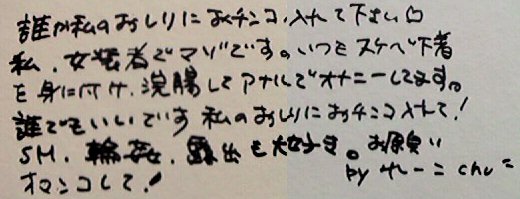 誰か私のおしりにおチンコ入れて下さい
私、女装者でマゾです。いつもスケベ下着
を身に付け、浣腸してアナルでオナニーしてます。
誰でもいいです 私のおしりにおチンコ入れて!
SM、輪姦、露出も大好き。お願い
オマンコして!
by れーこ chu